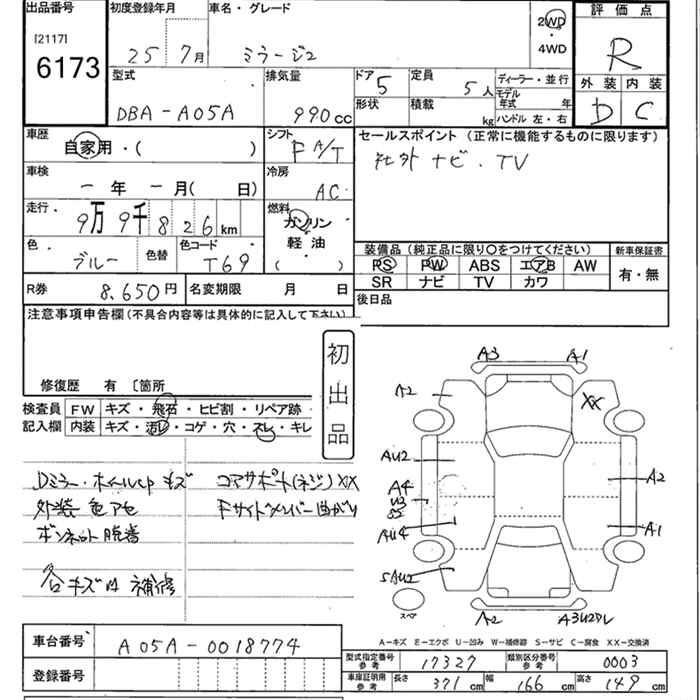 出品番号
[2117]
6173
初度登録年月
25 7月
車名・グレード
ミラージュ
2WD
・
4WD
評価点
R
外装 内装
D C
型式
DBA-A05A
排気量
990cc
ドア
5
形状
定員
5人
積載
kg
ディーラー・並行
モデル年式 年
ハンドル 左・右
車歴
自家用・( )
シフト
F A/T
セールスポイント (正常に機能するものに限ります)
社外ナビ.TV
車検
ー年ー月( 日)
冷房
AC
走行
9万9千826km
燃料
ガソリン
軽油
( )
色
ブルー
色替
色コード
T69
装備品(純正品に限り○をつけてください)
PS PW ABS エアB AW
SR ナビ TV カワ
新車保証書
有・無
R券
8,650円
名変期限 月 日
後日品
注意事項申告欄(不具合内容等は具体的に記入して下さい)
修復歴 有 〔箇所
初出品
検査員
記入欄
FW キズ・飛石・ヒビ割・リペア跡・
内装 キズ・汚レ・コゲ・穴・スレ・キレ
Dミラー・ホイールcp キズ
外装 色アセ
ボンネット脱着
各キズ有 補修
コアサポート(ネジ)XX
Fサイドメンバー曲がり
A3 A1
A2 XX
AU2 A2
A4
U2
S2
AU4 A1
SAU2
スペア
A2 A3U2
A-キズ E-エクボ U-凹み W-補修跡 S-サビ C-腐食 XX-交換済
車台番号
A05A-0018774
登録番号
型式指定番号
参考
17327
類別区分番号
参考
0003
車庫証明用
参考
長さ 371cm 幅 166cm 高さ 149cm